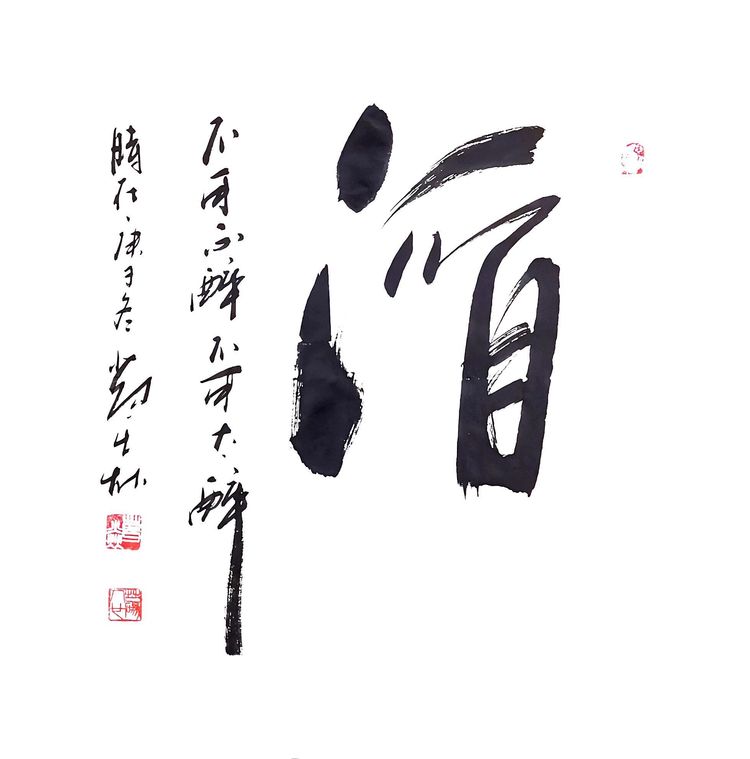 酒
不可不醉不可大醉
時在庚子冬 生林